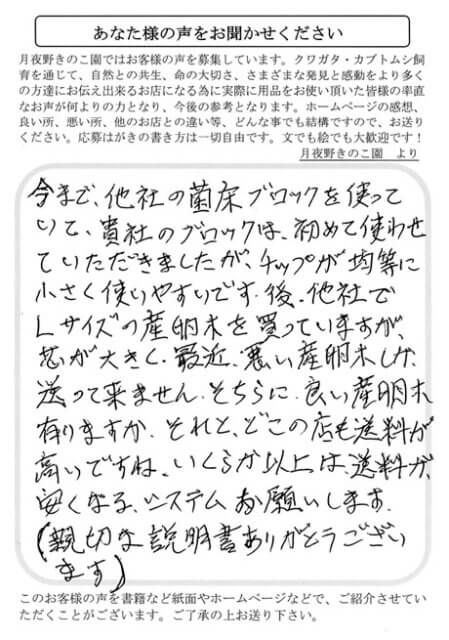 あなた様の声をお聞かせください
月夜野きのこ園ではお客様の声を募集しています。クワガタ・カブトムシ飼
育を通じて、自然との共生、命の大切さ、さまざまな発見と感動をより多く
の方達にお伝え出来るお店になる為に実際に用品をお使い頂いた皆様の率直
なお声が何よりの力となり、今後の参考となります。ホームページの感想、
良い所、悪い所、他のお店との違い等、どんな事でも結構ですので、お送り
ください。応募はがきの書き方は一切自由です。文でも絵でも大歓迎です！
月夜野きのこ園　より
今まで、他社の菌床ブロックを使って
いて、貴社のブロックは、初めて使わせ
ていただきましたが、チップが均等に
小さく使いやすいです。後、他社で
Lサイズの産卵木を買っていますが、
芯が大きく、最近、悪い産卵木しか、
送って来ません。そちらに、良い産卵木
有りますか。それと、どこの店も送料が
高いですね、いくらか以上は、送料が、
安くなる、システムお願いします。
(親切な説明書ありがとうござい
ます)
このお客様の声を書籍など紙面やホームページなどで、ご紹介させてい
ただくことがございます。ご了承の上お送り下さい。